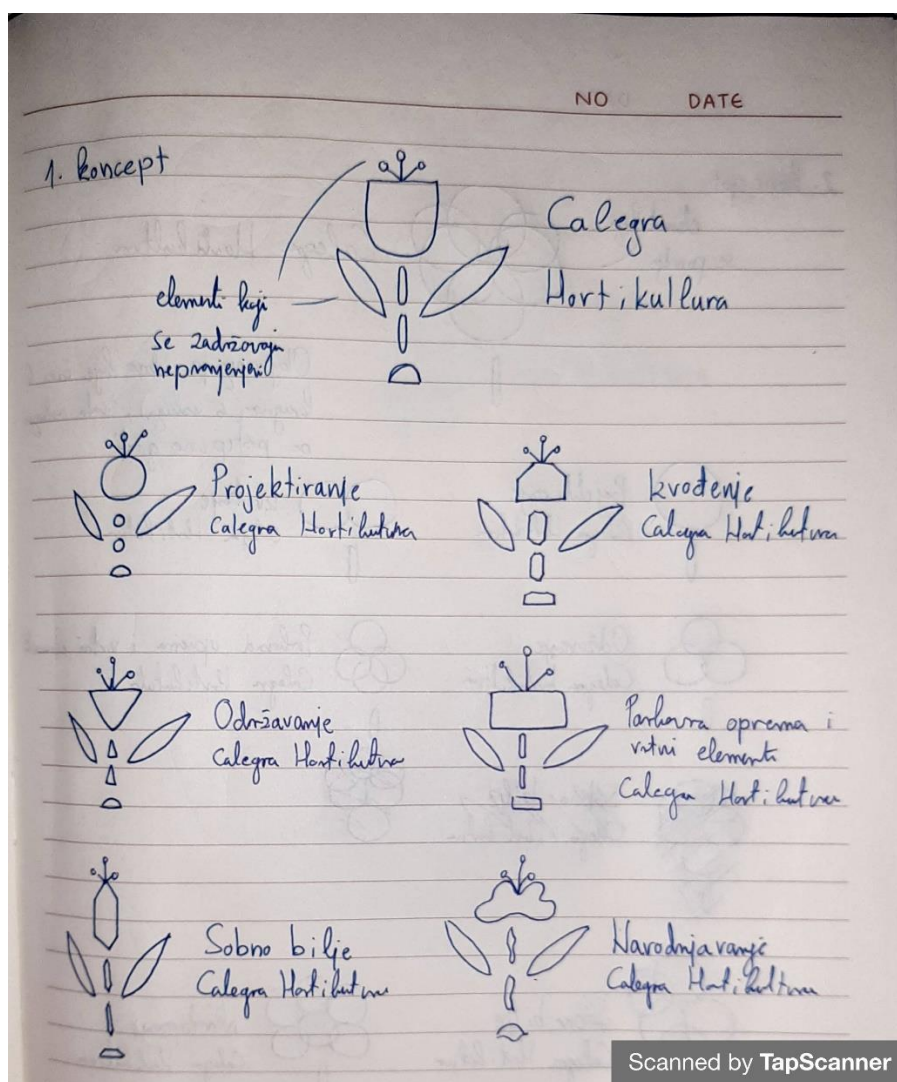 NO DATE
1. koncept
Calegra
Hortikultura
elementi koji
se zadržavaju
nepromjenjeni
Projektiranje
Calegra Hortikultura
Izvođenje
Calegra Hortikultura
Održavanje
Calegra Hortikultura
Parkovna oprema i
vrtni elementi
Calegra Hortikultura
Sobno bilje
Calegra Hortikultura
Navodnjavanje
Calegra Hortikultura
Scanned by TapScanner